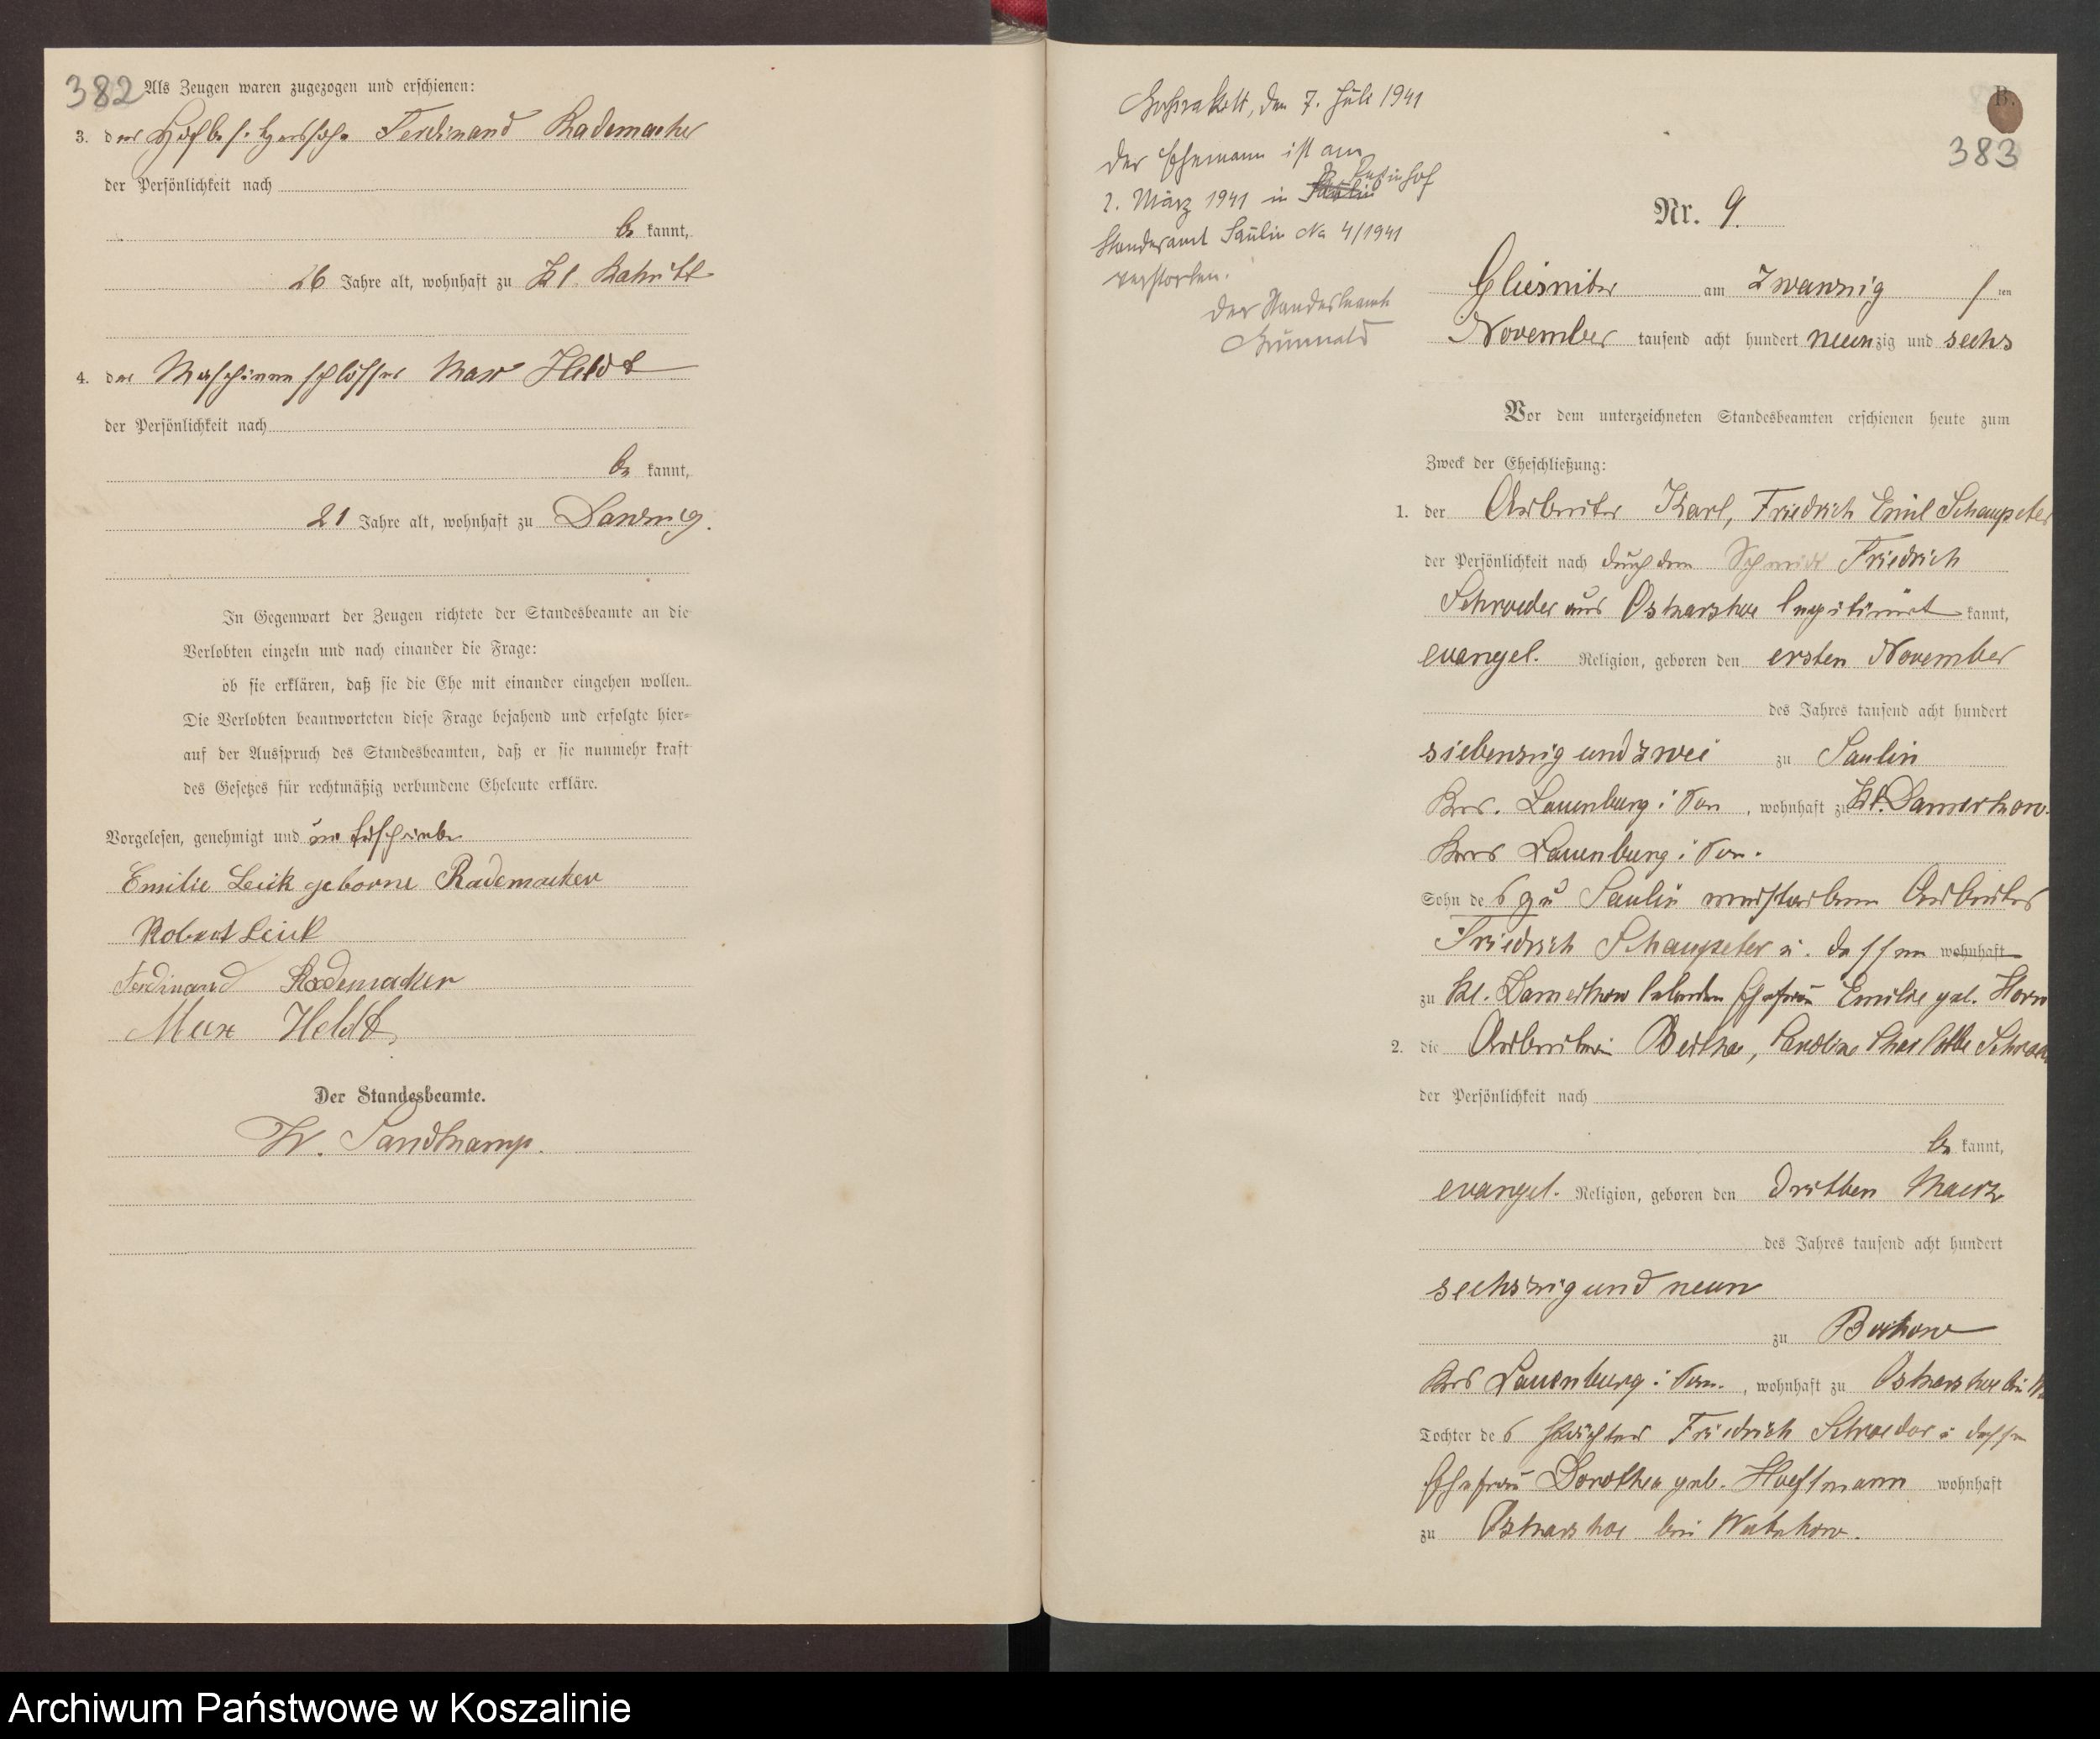 382 Als Zeugen waren zugezogen und erschienen:
3. der Hofbesitzersohn Ferdinand Rademacher
der Persönlichkeit nach
be kannt,
26 Jahre alt, wohnhaft zu Kl.
4. der Maschinenschlosser Max Heldt
der Persönlichkeit nach
be kannt,
21 Jahre alt, wohnhaft zu Danzig.
In Gegenwart der Zeugen richtete der Standesbeamte an die
Verlobten einzeln und nach einander die Frage:
ob sie erklären, daß sie die Ehe mit einander eingehen wollen.
Die Verlobten beantworteten diese Frage bejahend und erfolgte hier-
auf der Ausspruch des Standesbeamten, daß er sie nunmehr kraft
des Gesetzes für rechtmäßig verbundene Eheleute erkläre.
Vorgelesen, genehmigt und unterschrieben
Emilie Leick geborne Rademacher
Robert Leick
Ferdinand Rademacker
Max Heldt
Der Standesbeamte.
W. Sandkamp.
den 7. Juli 1941
Der Ehemann ist am
2. März 1941 in
Standesamt Saulin No 4/1941
verstorben.
Der Standesbeamte
Grünwald
B.
383
Nr. 9.
Gliesnitz am zwanzig sten
November tausend acht hundert neunzig und sechs
Vor dem unterzeichneten Standesbeamten erschienen heute zum
Zweck der Eheschließung:
1. der Arbeiter Karl, Friedrich Emil Schaupeter
der Persönlichkeit nach durch den Schmidt Friedrich
Schroeder aus legitimirt kannt,
evangel. Religion, geboren den ersten November
des Jahres tausend acht hundert
siebenzig und zwei zu Saulin
Krs. Lauenburg i Pom, wohnhaft zu Kl. Damerkow
Kreis Lauenburg i Pom.
Sohn des zu Saulin verstorbenen Arbeiters
Friedrich Schaupeter u. dessen wohnhaft
zu Kl. Damerkow lebenden Ehefrau Emilie geb. Horn
2. die Arbeiterin Bertha, Karoline Charlotte
der Persönlichkeit nach
be kannt,
evangel. Religion, geboren den dritten Maerz
des Jahres tausend acht hundert
sechszig und neun
zu Bochow
Krs Lauenburg i Pom., wohnhaft zu
Tochter des Friedrich Schroeder u dessen
Ehefrau Dorothea geb. Hoeftmann wohnhaft
zu bei
Archiwum Państwowe w Koszalinie